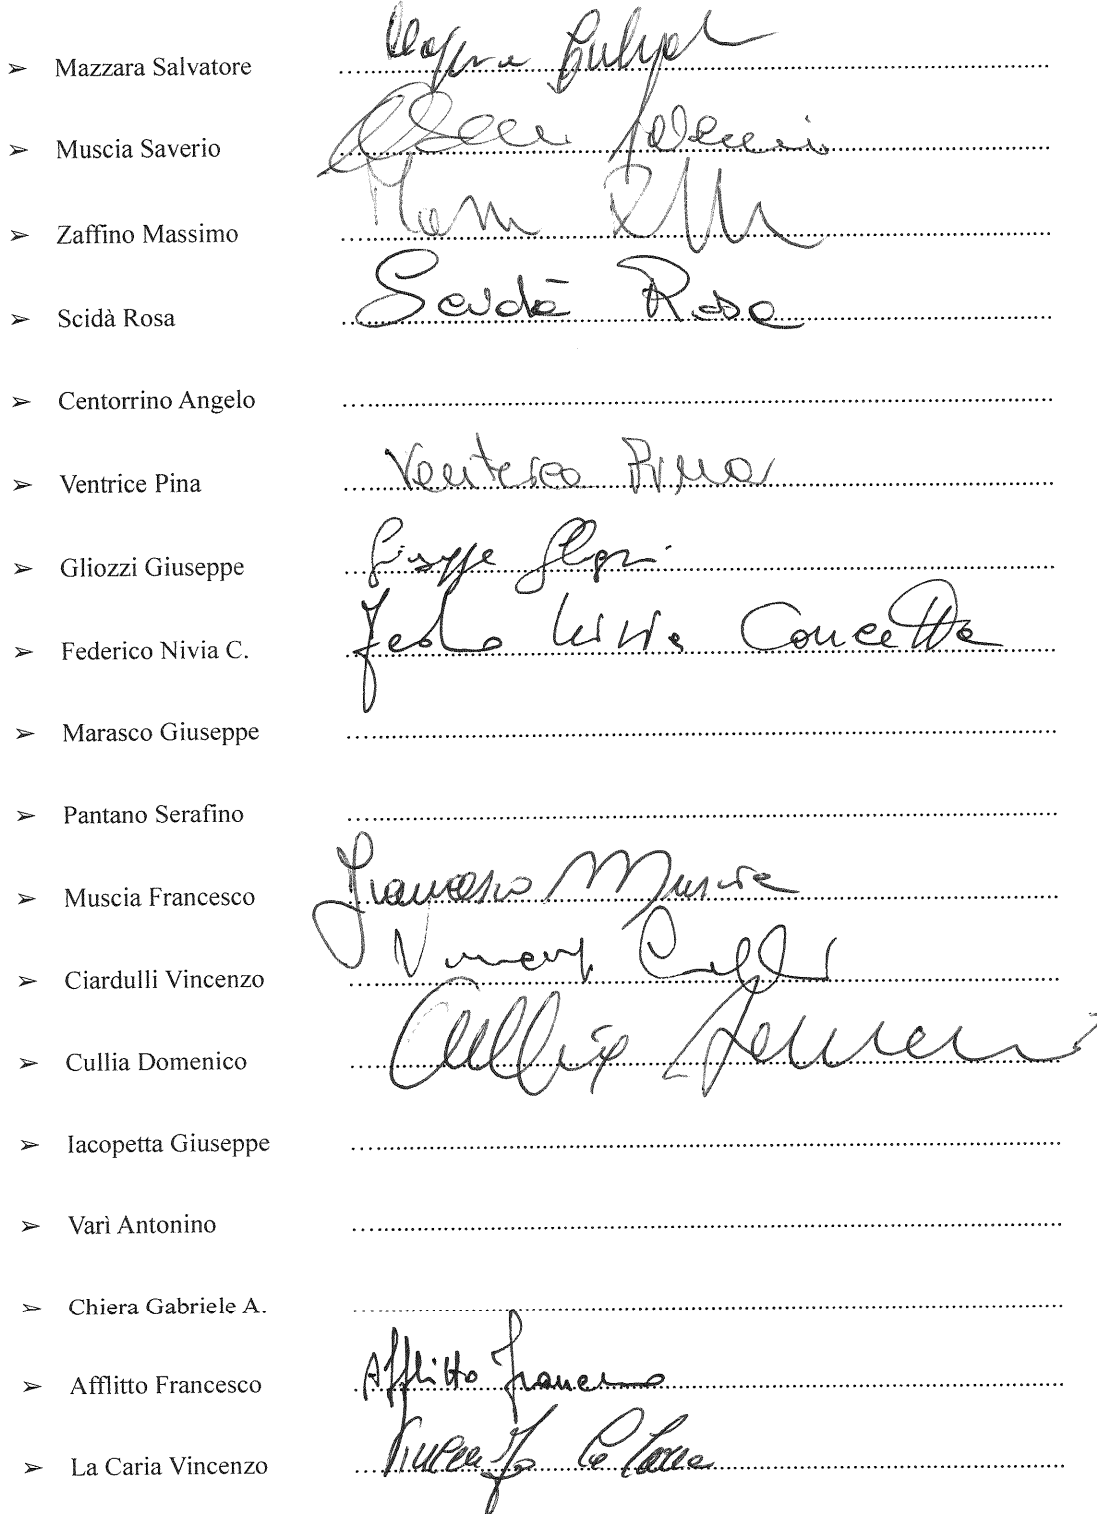 ➢ Mazzara Salvatore
➢ Muscia Saverio
➢ Zaffino Massimo
➢ Scidà Rosa Scidà Rosa
➢ Centorrino Angelo
➢ Ventrice Pina Ventrice Pina
➢ Gliozzi Giuseppe Giuseppe
➢ Federico Nivia C. Nivia Concetta
➢ Marasco Giuseppe
➢ Pantano Serafino
➢ Muscia Francesco Francesco Muscia
➢ Ciardulli Vincenzo
➢ Cullia Domenico Cullia
➢ Iacopetta Giuseppe
➢ Varì Antonino
➢ Chiera Gabriele A.
➢ Afflitto Francesco Afflitto Francesco
➢ La Caria Vincenzo Vincenzo La Caria